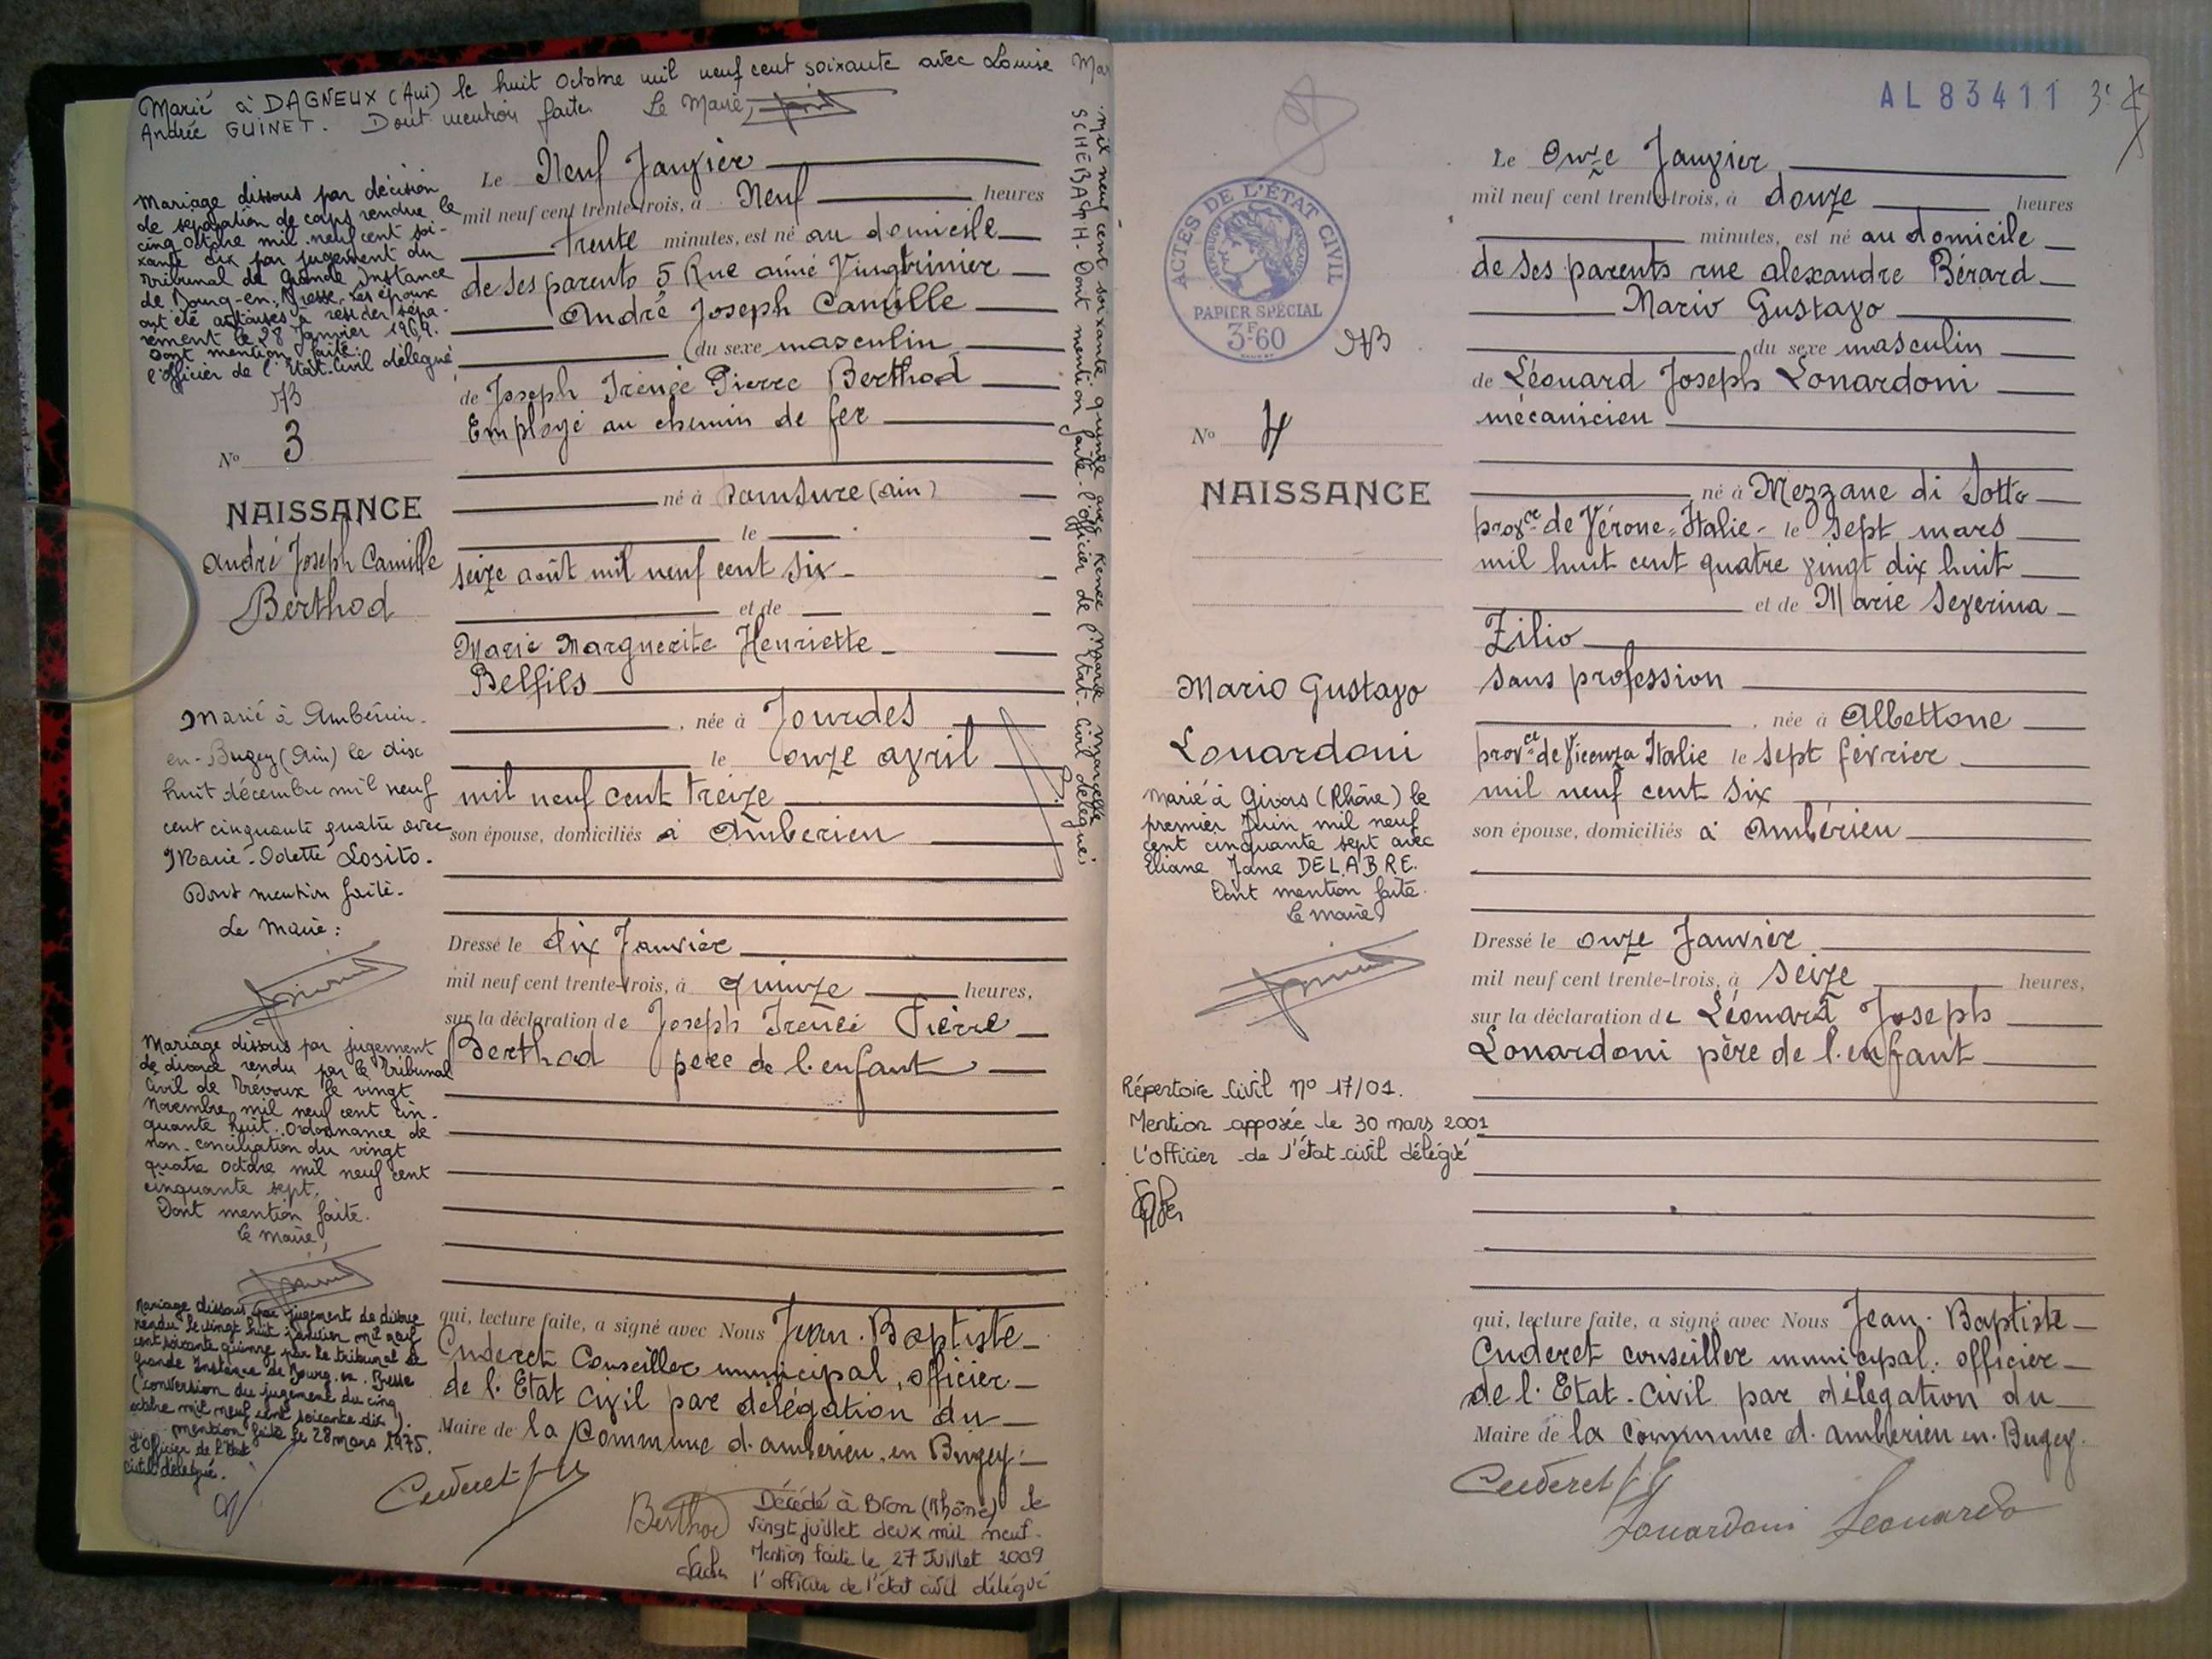 Marié à DAGNEUX (Ain) le huit Octobre mil neuf cent soixante avec Louise
Andrée GUINET. Dont mention faite. Le Maire,
Mariage dissous par décision
de séparation de corps rendue le
cinq Octobre mil neuf cent soi-
xante dix par jugement du
Tribunal de Grande Instance
de Bourg-en-Bresse. Les époux
ont été autorisés à résider sépa-
rement le 28 Janvier 1969.
Dont mention faite.
l'officier de l'Etat-Civil délégué
N° 3
NAISSANCE
André Joseph Camille
Berthod
Marié à Ambérieu-
en-Bugey (Ain) le dix
huit décembre mil neuf
cent cinquante quatre avec
Marie-Odette Losito.
Dont mention faite.
Le Maire :
Mariage dissous par jugement
de divorce rendu par le Tribunal
Civil de Trévoux le vingt
Novembre mil neuf cent cin-
quante huit. Ordonnance de
non-conciliation du vingt
quatre Octobre mil neuf cent
cinquante sept.
Dont mention faite.
Le Maire,
Mariage dissous par jugement de divorce
rendu le vingt huit janvier mil neuf
cent soixante quinze par le tribunal de
Grande Instance de Bourg-en-Bresse
(conversion du jugement du cinq
octobre mil neuf cent soixante dix).
mention faite le 28 mars 1975.
L'officier de l'Etat
civil délégué.
Le Neuf Janvier
mil neuf cent trente-trois, à Neuf heures
trente minutes, est né au domicile
de ses parents 5 Rue aimé Vingtrinier
André Joseph Camille
du sexe masculin
de Joseph Irénée Pierre Berthod
Employé au chemin de fer
né à Domsure (Ain)
le
seize août mil neuf cent six
et de
Marie Marguerite Henriette
Belfils
, née à Jourdes
le onze avril
mil neuf cent treize
son épouse, domiciliés à Ambérieu
Dressé le dix Janvier
mil neuf cent trente-trois, à quinze heures,
sur la déclaration de Joseph Irénée Pierre
Berthod père de l'enfant
qui, lecture faite, a signé avec Nous Jean-Baptiste
Cuderet Conseiller municipal, officier
de l'Etat Civil par délégation du
Maire de la Commune d'ambérieu-en-Bugey
Cuderet
Berthod
Décédé à Bron (Rhône) le
vingt juillet deux mil neuf.
Mention faite le 27 Juillet 2009
l'officier de l'état civil délégué
mil neuf cent soixante quinze avec Renée Marie Marcelle
SCHEBATH. Dont mention faite. l'officier de l'Etat-Civil délégué
AL 83411 3e
ACTES DE L'ÉTAT CIVIL
RÉPUBLIQUE FRANÇAISE
PAPIER SPÉCIAL
3F60
N° 4
NAISSANCE
Mario Gustavo
Lonardoni
marié à Givors (Rhône) le
premier Juin mil neuf
cent cinquante sept avec
Eliane Jane DELABRE.
Dont mention faite.
Le maire,
Répertoire Civil n° 17/01.
Mention apposée le 30 mars 2001
L'officier de l'état-civil délégué
Le Onze Janvier
mil neuf cent trente-trois, à douze heures
minutes, est né au domicile
de ses parents rue alexandre Bérard
Mario Gustavo
du sexe masculin
de Léonard Joseph Lonardoni
mécanicien
né à Mezzane di Sotto
provce de Vérone-Italie- le sept mars
mil huit cent quatre vingt dix huit
et de Marie Severina
Zilio
sans profession
, née à Albettone
provce de Vicenza Italie le sept février
mil neuf cent six
son épouse, domiciliés à Ambérieu
Dressé le onze Janvier
mil neuf cent trente-trois, à seize heures,
sur la déclaration de Léonard Joseph
Lonardoni père de l'enfant
qui, lecture faite, a signé avec Nous Jean-Baptiste
Cuderet conseiller municipal. officier
de l'Etat-Civil par délégation du
Maire de la Commune d'ambérieu-en-Bugey.
Cuderet
Lonardoni Leonardo